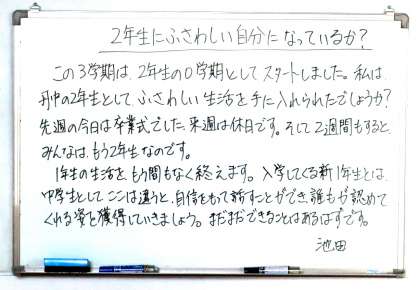 2年生にふさわしい自分になっているか?
この3学期は、2年生の0学期としてスタートしました。私は、
丹中の2年生として、ふさわしい生活を手に入れられたでしょうか?
先週の今日は卒業式でした。来週は休日です。そして2週間もすると、
みんなは、もう2年生なのです。
1年生の生活を、もう間もなく終えます。入学してくる新1年生とは、
中学生として、ここは違うと、自信をもって話すことができ、誰もが認めて
くれる姿を獲得していきましょう。まだまだできることはあるはずです。
池田